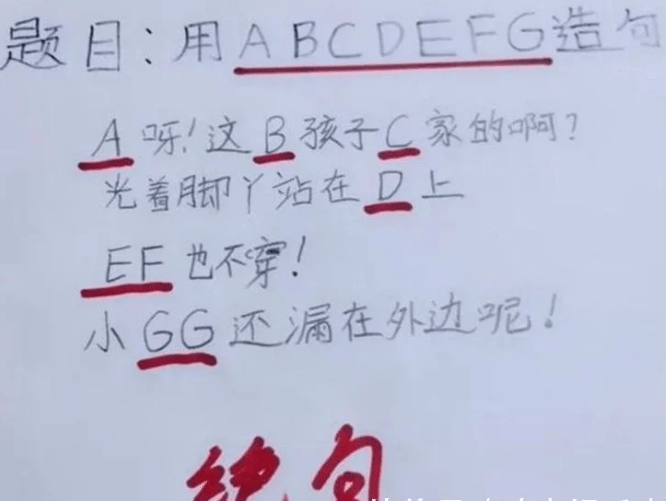 题目:用ABCDEFG造句
A呀!这B孩子C家的啊?
光着脚丫站在D上
EF也不穿!
小GG还漏在外边呢!
绝句